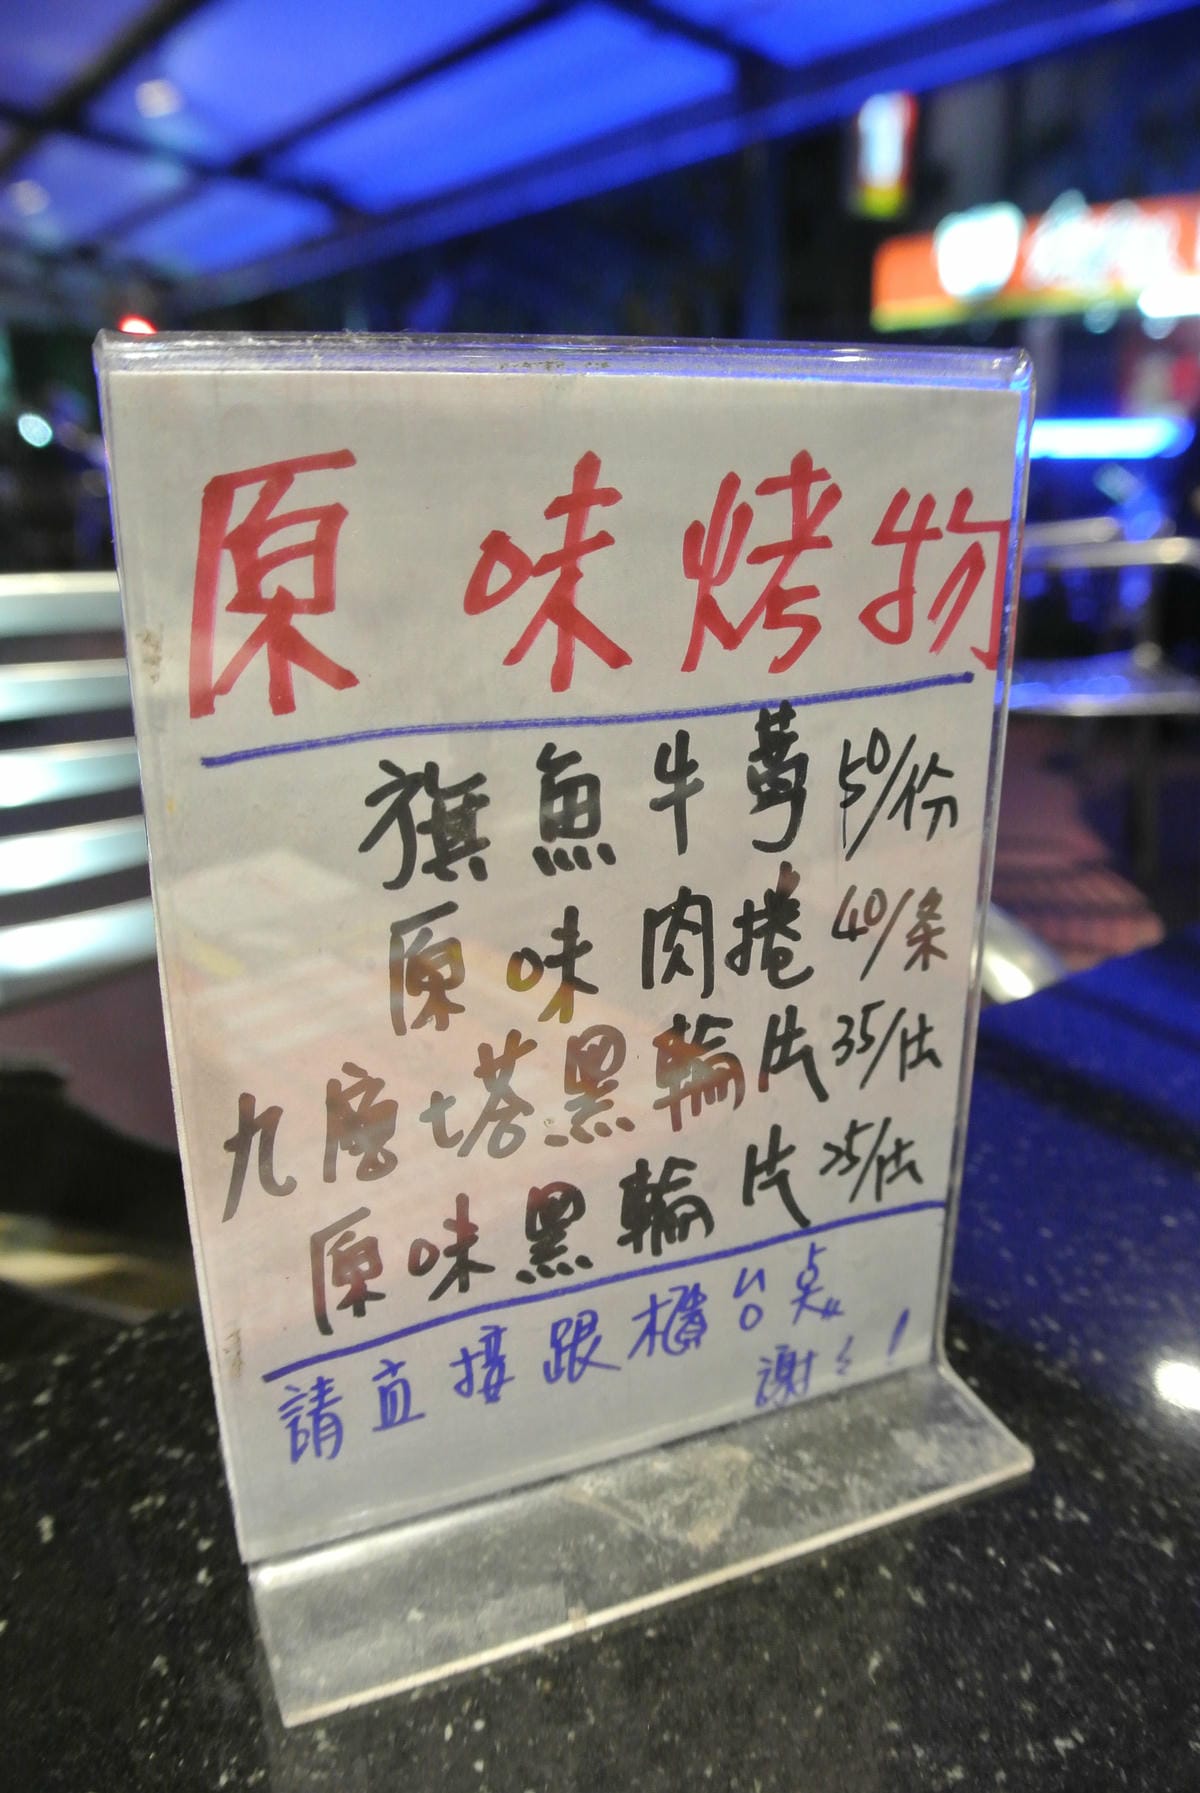 原味烤物
旗魚牛蒡 50/份
原味肉捲 40/条
九層塔黑輪片 35/片
原味黑輪片 25/片
請直接跟櫃台点
謝々!